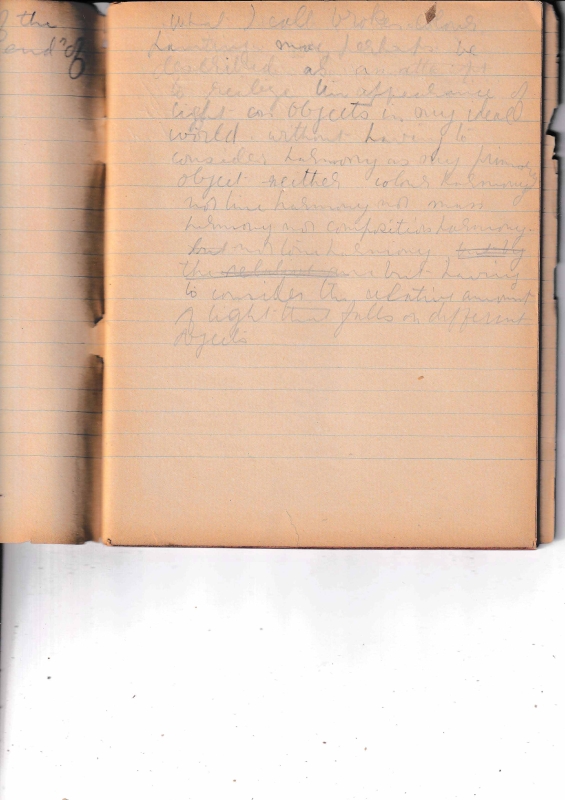 of the
and "of
What I call Broken colour
painting may perhaps be
described as an attempt
to realise the appearance of
light on objects in my ideal
world. without having to
consider harmony as my primary
object neither colour harmony
nor line harmony nor mass
harmony nor composition harmony
but nor tone harmony
the relative but having
to consider the relative amount
of light that falls on different
objects